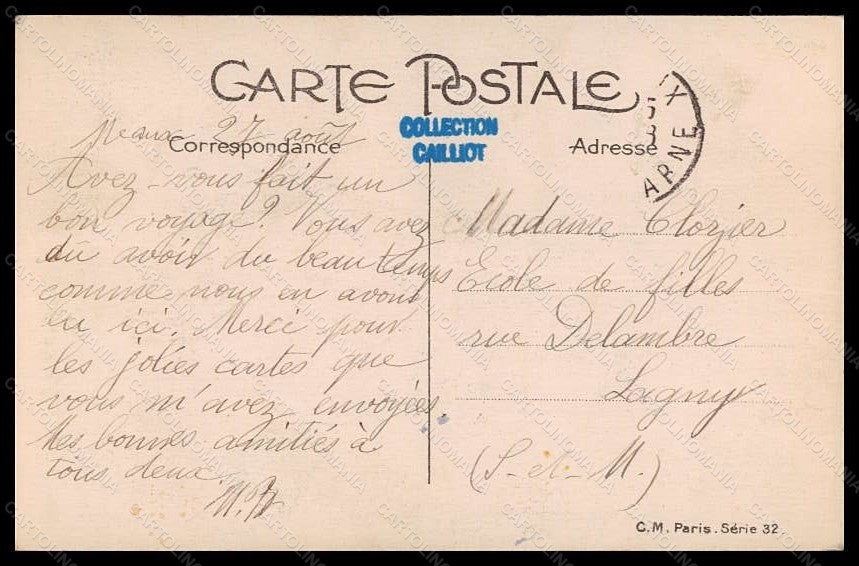 CARTE POSTALE
COLLECTION
CAILLIOT
Correspondance
Adresse
ARNE
Meaux 27 août
Avez-vous fait un
bon voyage? Vous avez
dû avoir du beau temps
comme nous en avons
eu ici. Merci pour
les jolies cartes que
vous m'avez envoyées.
Mes bonnes amitiés à
tous deux.
Madame Clozier
Ecole de filles
rue Delambre
Lagny
(S-et-M.)
C.M. Paris. Série 32
CARTOLINOMANIA